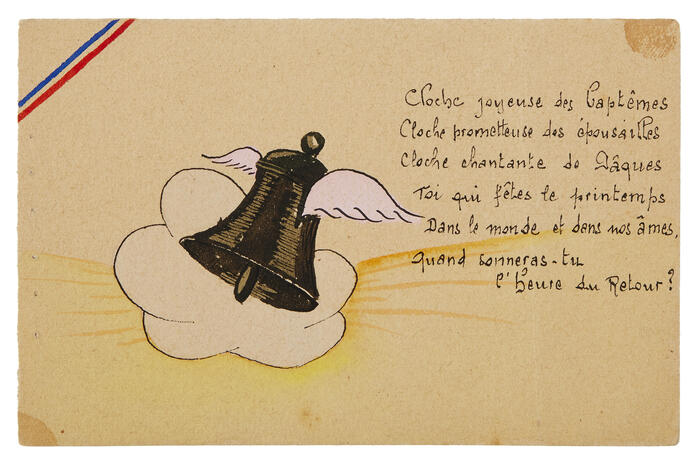 Cloche joyeuse des baptêmes
Cloche prometteuse des épousailles
Cloche chantante de Pâques
Toi qui fêtes le printemps
Dans le monde et dans nos âmes,
quand sonneras-tu
l'heure du Retour?